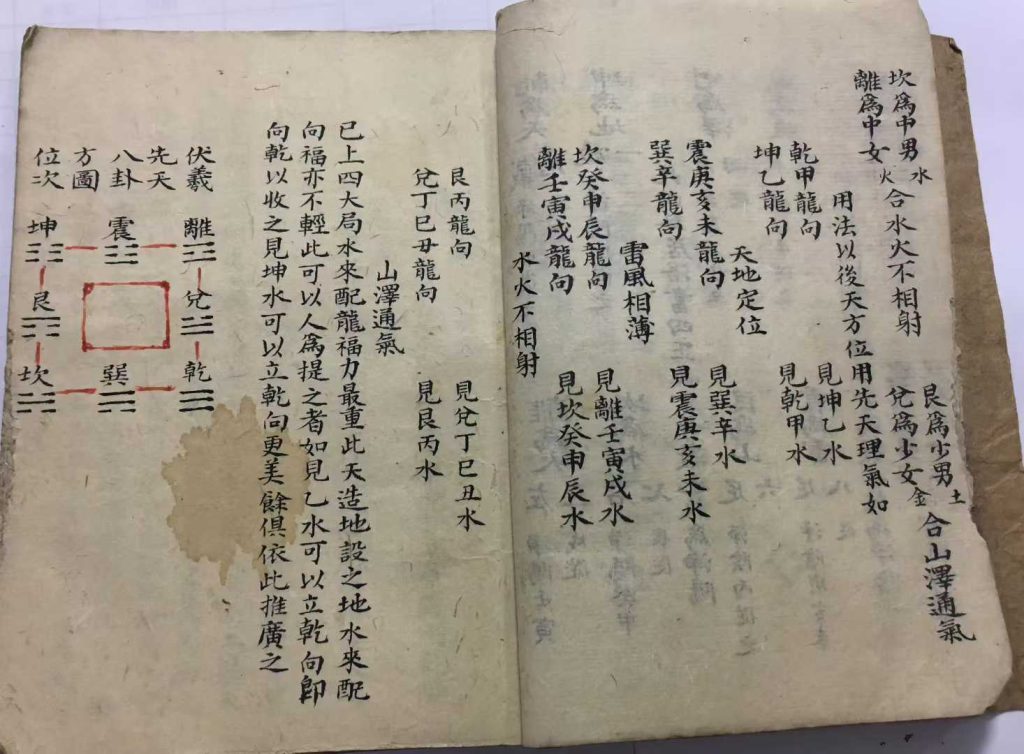 艮為少男土
兌為少女金
合山澤通氣
坎為中男水
離為中女火
合水火不相射
用法以後天方位用先天理氣如
乾甲龍向 見坤乙水
坤乙龍向 見乾甲水
天地定位
震庚亥未龍向 見巽辛水
巽辛龍向 見震庚亥未水
雷風相薄
坎癸申辰龍向 見離壬寅戌水
離壬寅戌龍向 見坎癸申辰水
水火不相射
艮丙龍向 見兌丁巳丑水
兌丁巳丑龍向 見艮丙水
山澤通氣
已上四大局水來配龍福力最重此天造地設之地水來配
向福亦不輕此可以人為提之者如見乙水可以立乾向即
向乾以收之見坤水可以立乾向更美餘俱依此推廣之
伏羲
先天
八卦
方圖
位次
離 震 坤
兌 艮
乾 巽 坎